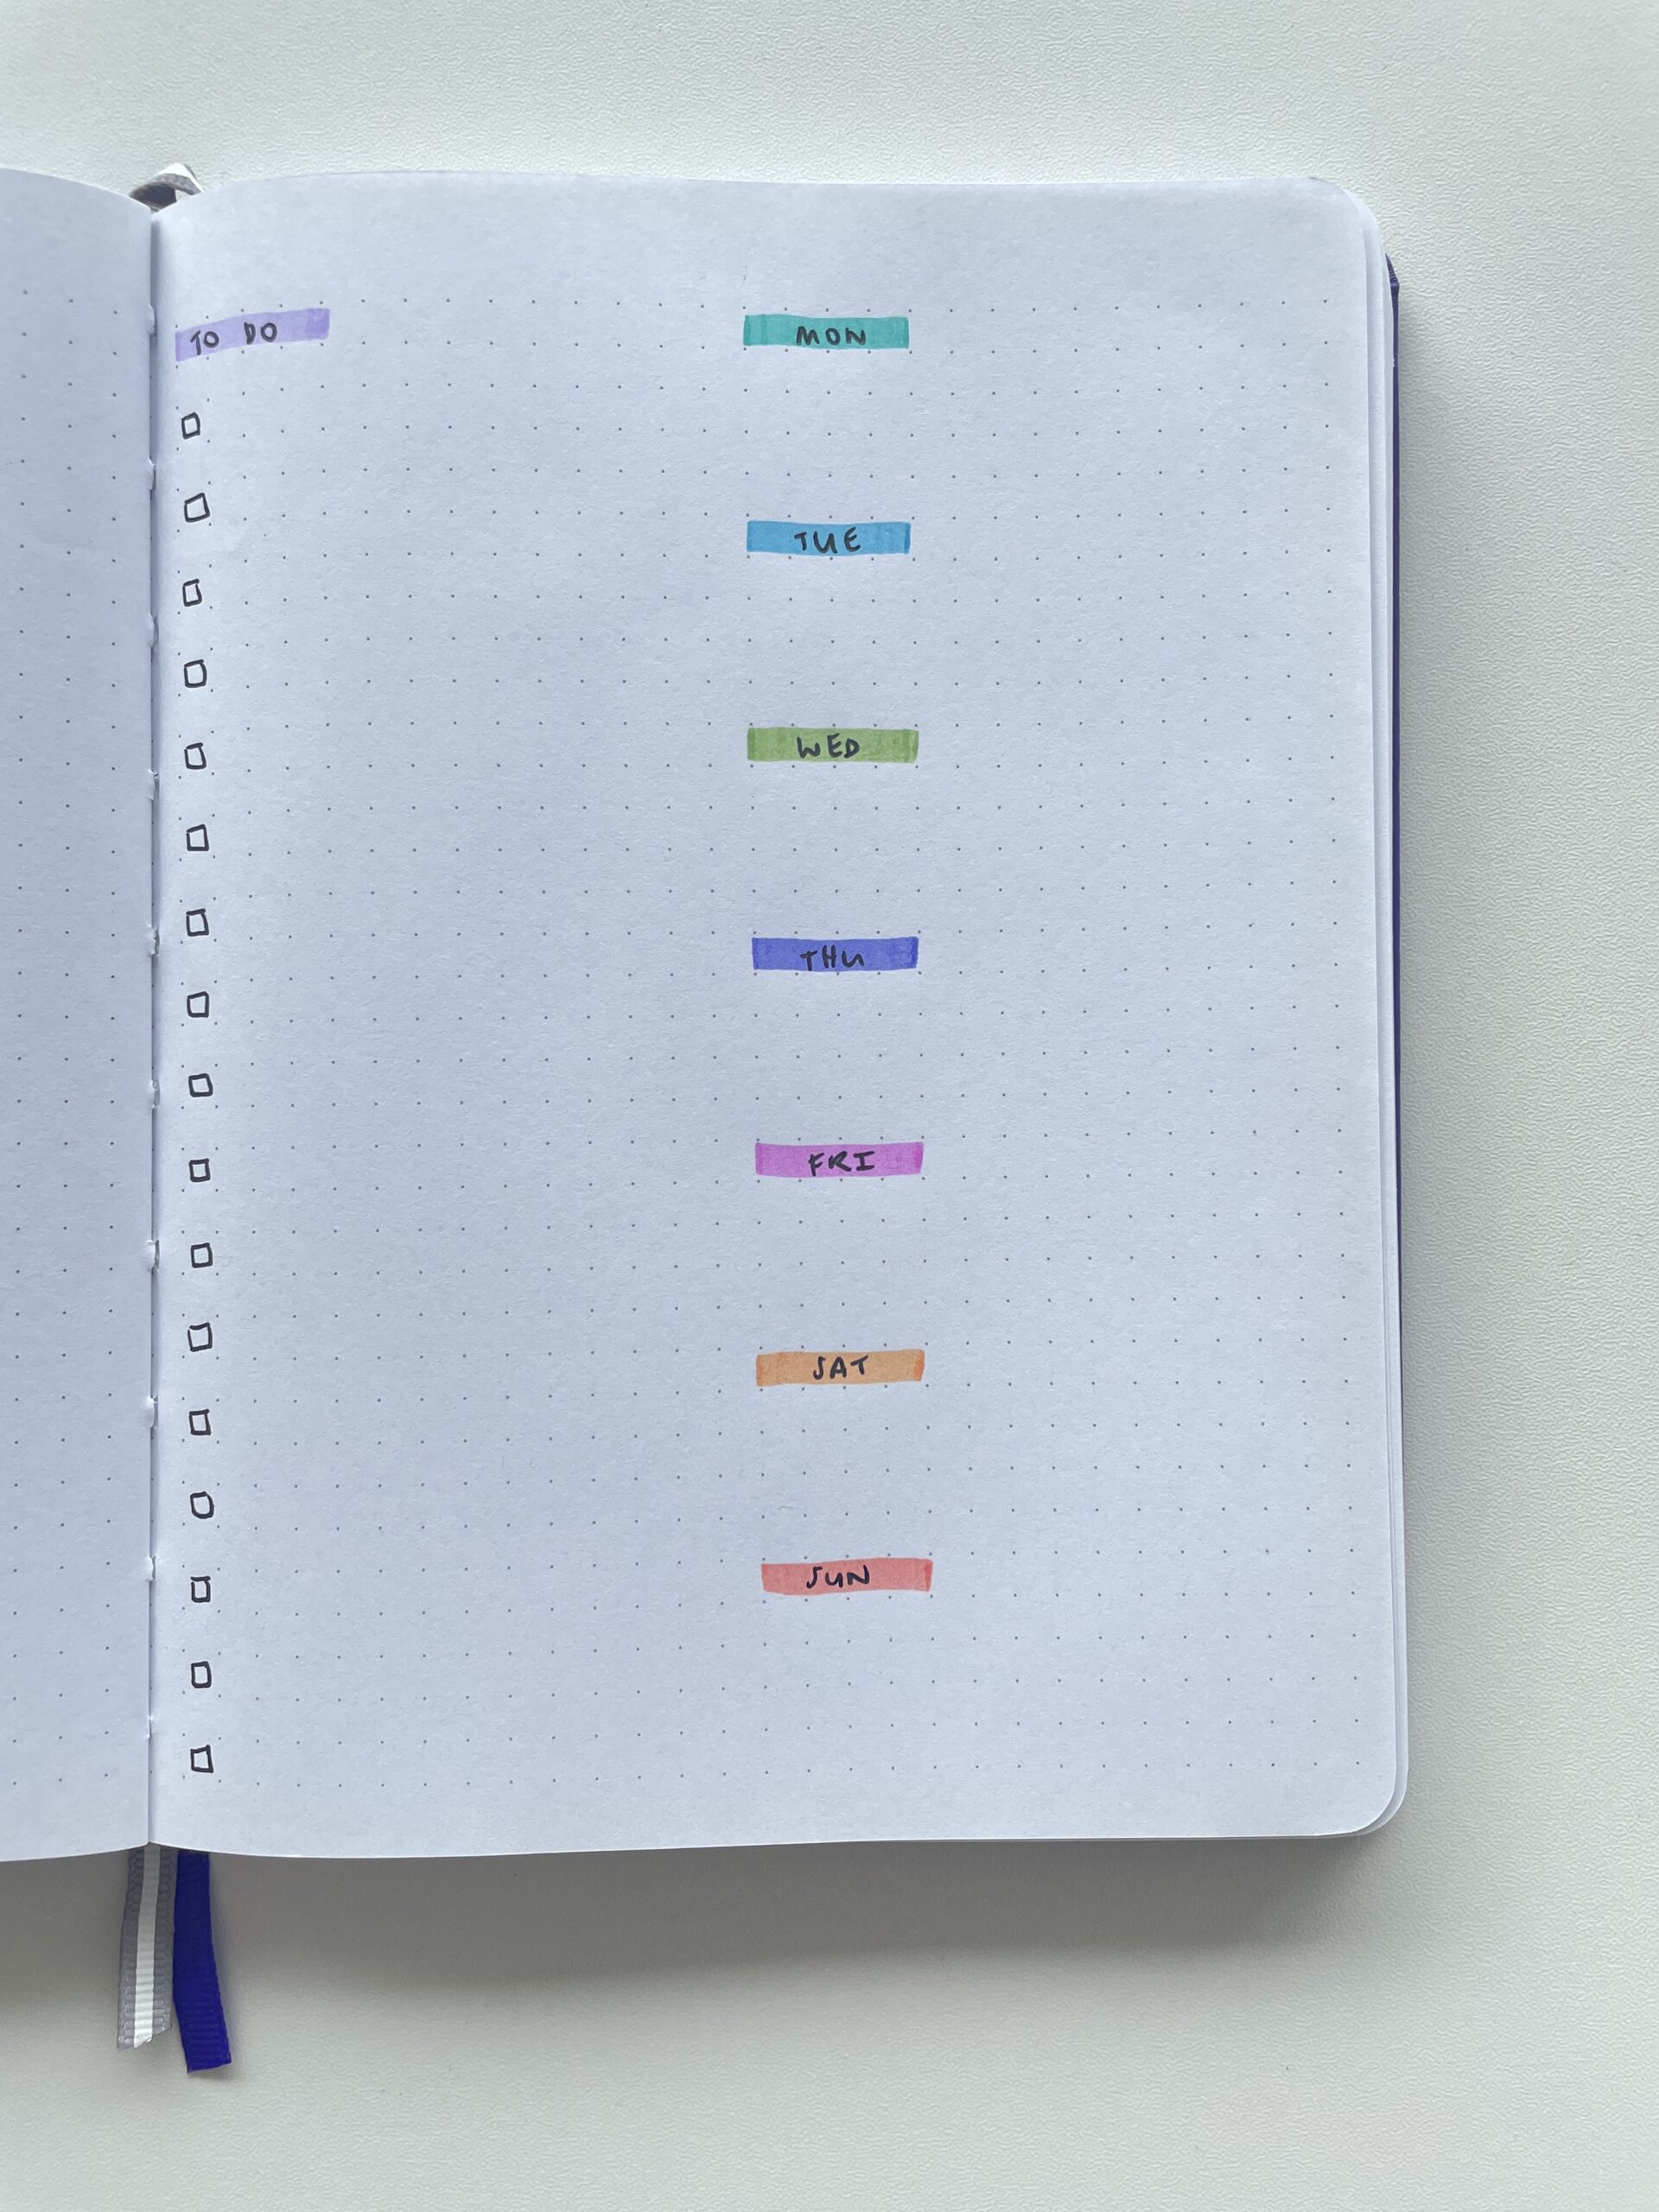 TO DO
MON
TUE
WED
THU
FRI
SAT
SUN